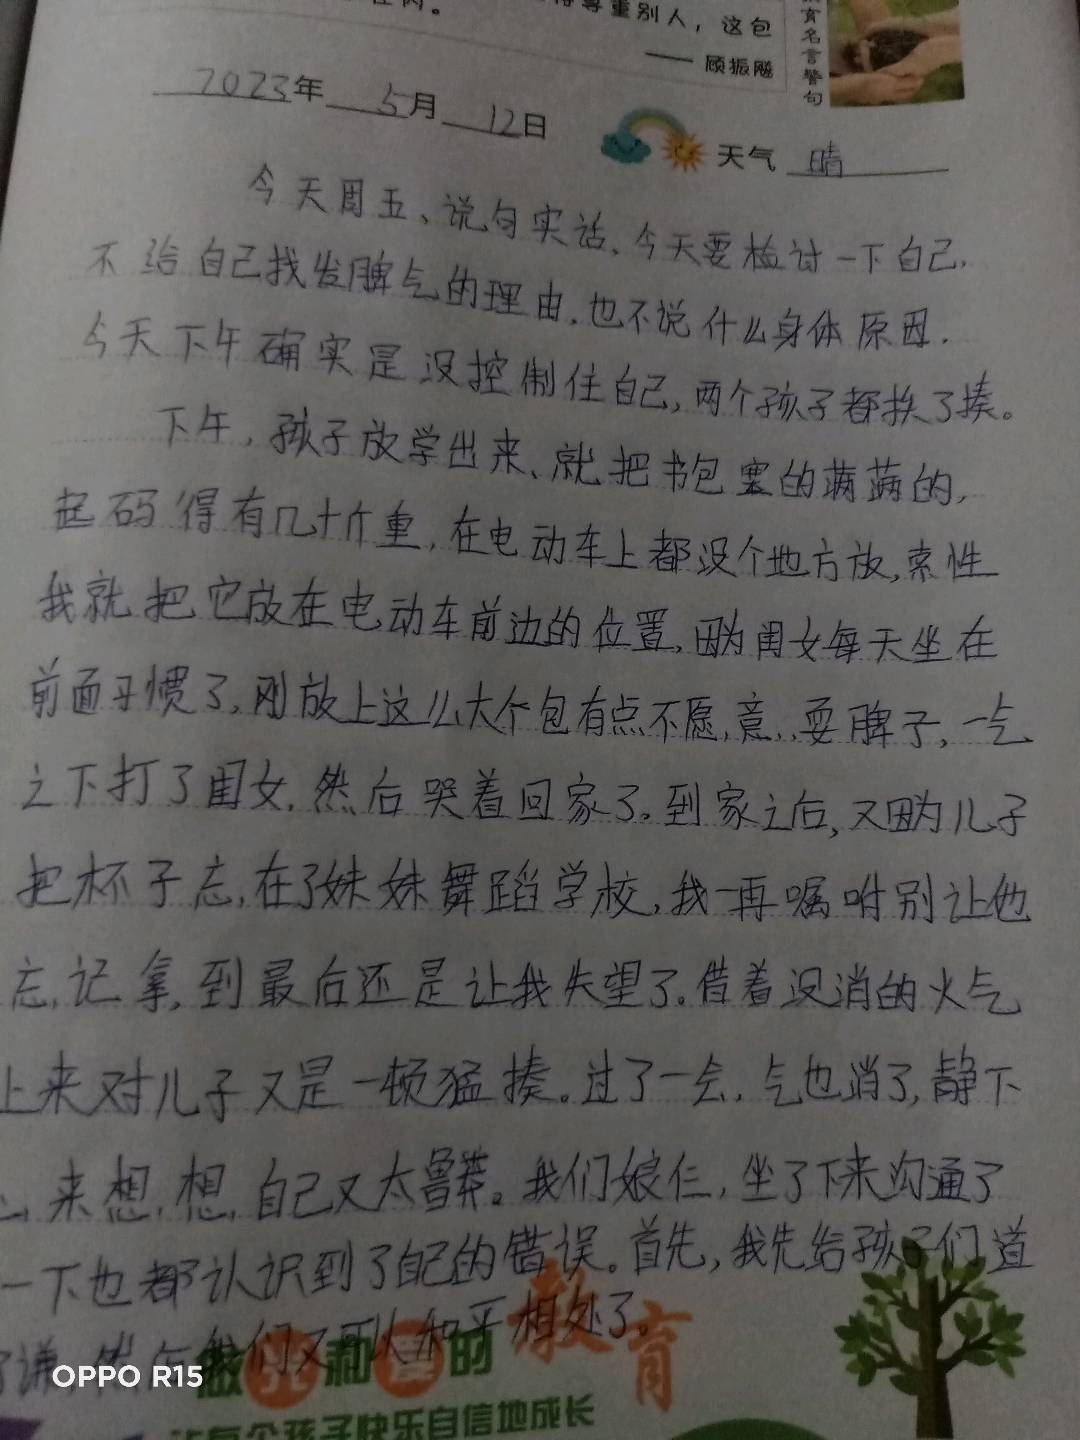 得尊重别人，这包
在内。
—— 顾振飚
教育名言警句
2023年 5月 12日 天气 晴
今天周五、说句实话、今天要检讨一下自己.
不给自己找发脾气的理由.也不说什么身体原因.
今天下午确实是没控制住自己,两个孩子都挨了揍。
下午,孩子放学出来、就把书包塞的满满的,
起码得有几十斤重,在电动车上都没个地方放,索性
我就把它放在电动车前边的位置,因为闺女每天坐在
前面习惯了,刚放上这么大个包有点不愿意,耍脾子,一气
之下打了闺女.然后哭着回家了。到家之后,又因为儿子
把杯子忘在了妹妹舞蹈学校,我一再嘱咐别让他
忘记拿,到最后还是让我失望了。借着没消的火气
上来对儿子又是一顿猛揍。过了一会,气也消了,静下
心来想想,自己又太鲁莽。我们娘仨,坐了下来沟通了
一下也都认识到了自己的错误。首先,我先给孩子们道
了谦.然后我们又可以和平相处了。
做 和 的教育
让每个孩子快乐自信地成长
OPPO R15